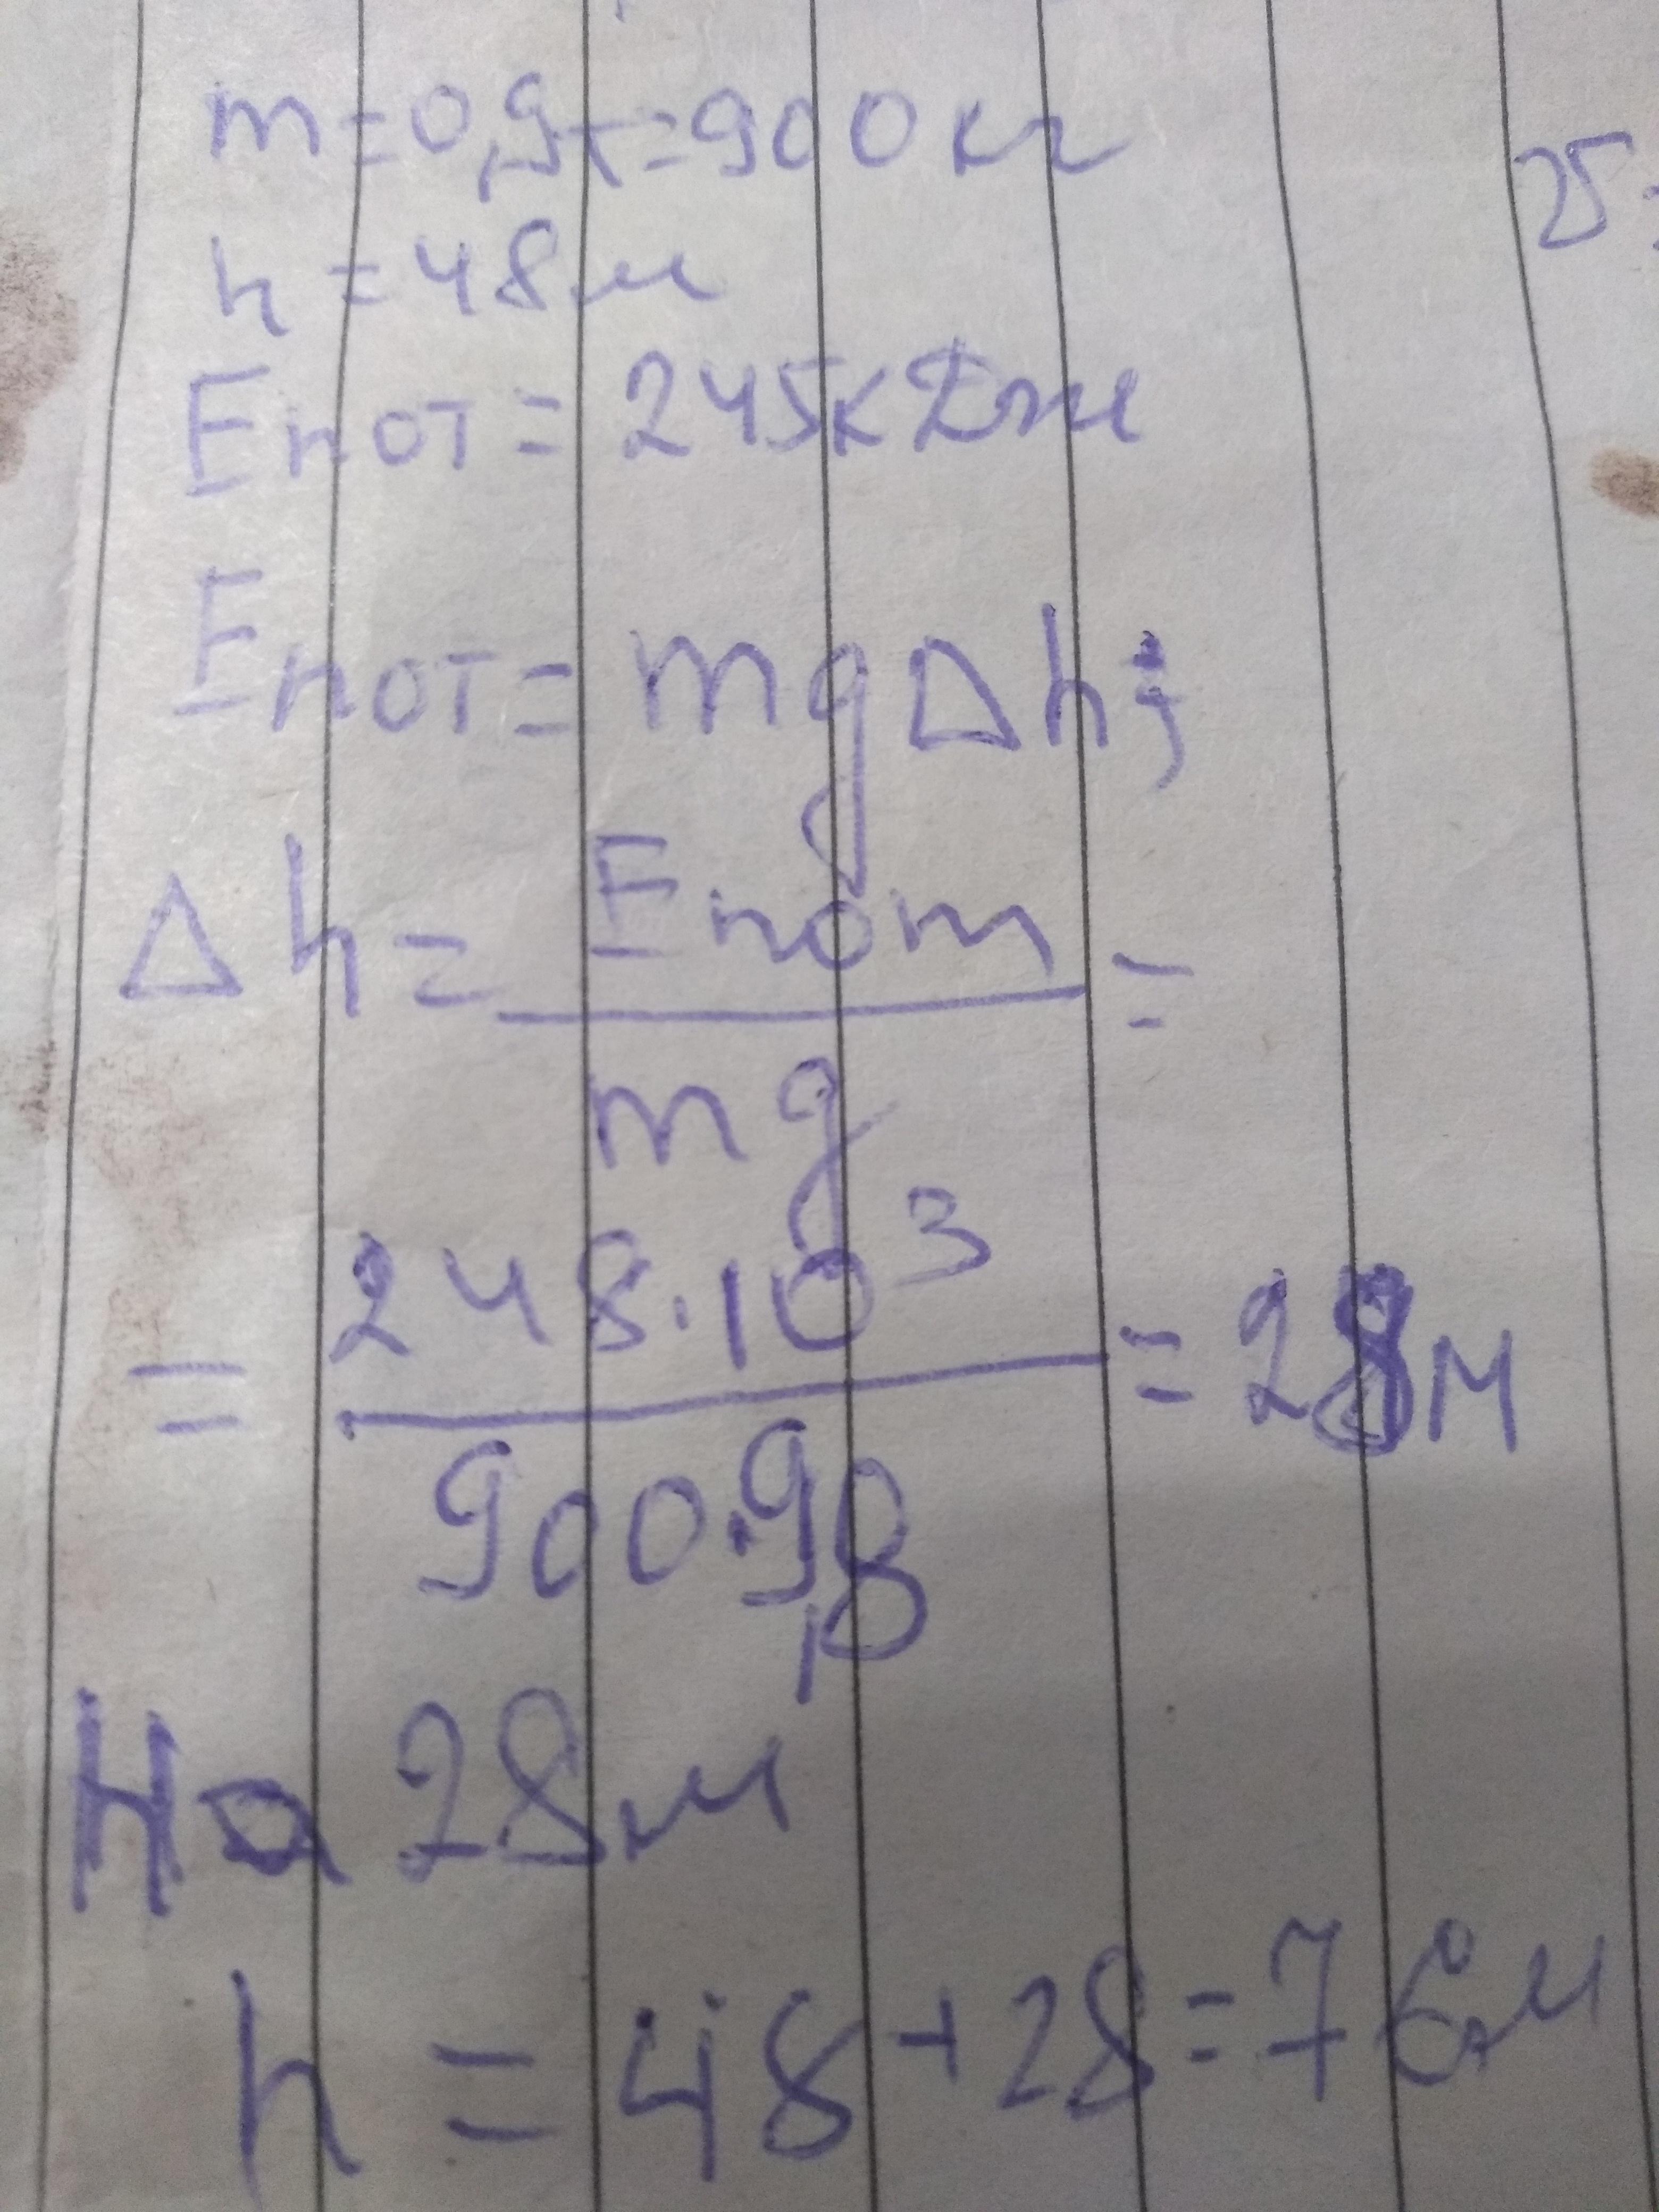 m=0,9т=900кг
h=48м
Eпот=245кДж
Eпот=mgΔh;
Δh=Eпот/mg=
=248·10³/900·9,8=28м
На 28м
h=48+28=76м